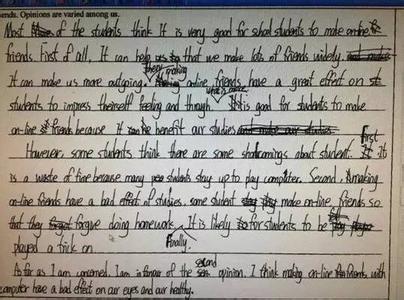 ends. Opinions are varied among us.
Most of the students think It is very good for school students to make online
friends. First of all, It can help us that we make lots of friends widely.
It can make us more outgoing. then making online friends have a great effect on
students to impress theirself feeling and though. what is more It is good for students to make
on-line friends because It can benefit our studies
However, some students think there are some shortcomings about student. first It
is a waste of time because many students stay up to play computer. Second, making
on-line friends have a bad effect of studies. some student make on-line friends so
that they forgive doing homework. Finally It is likely for students to be
played a trick on
As far as I am concerned, I am in favour of the second opinion. I think making on-line friends with
computer have a bad effect on our eyes and our healthy.